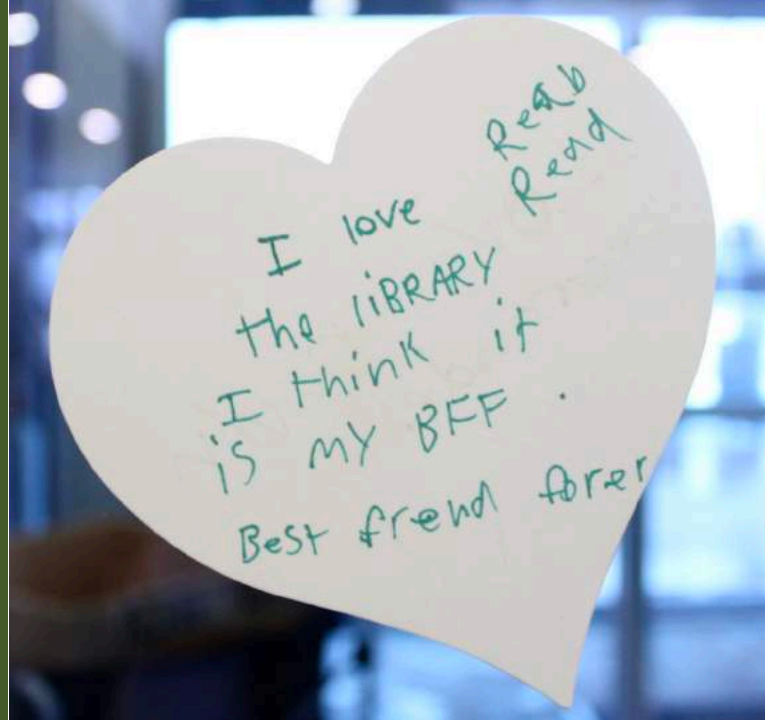 Reab
Read
I love
the liBRARY
I think it
is MY BFF.
Best frend forer